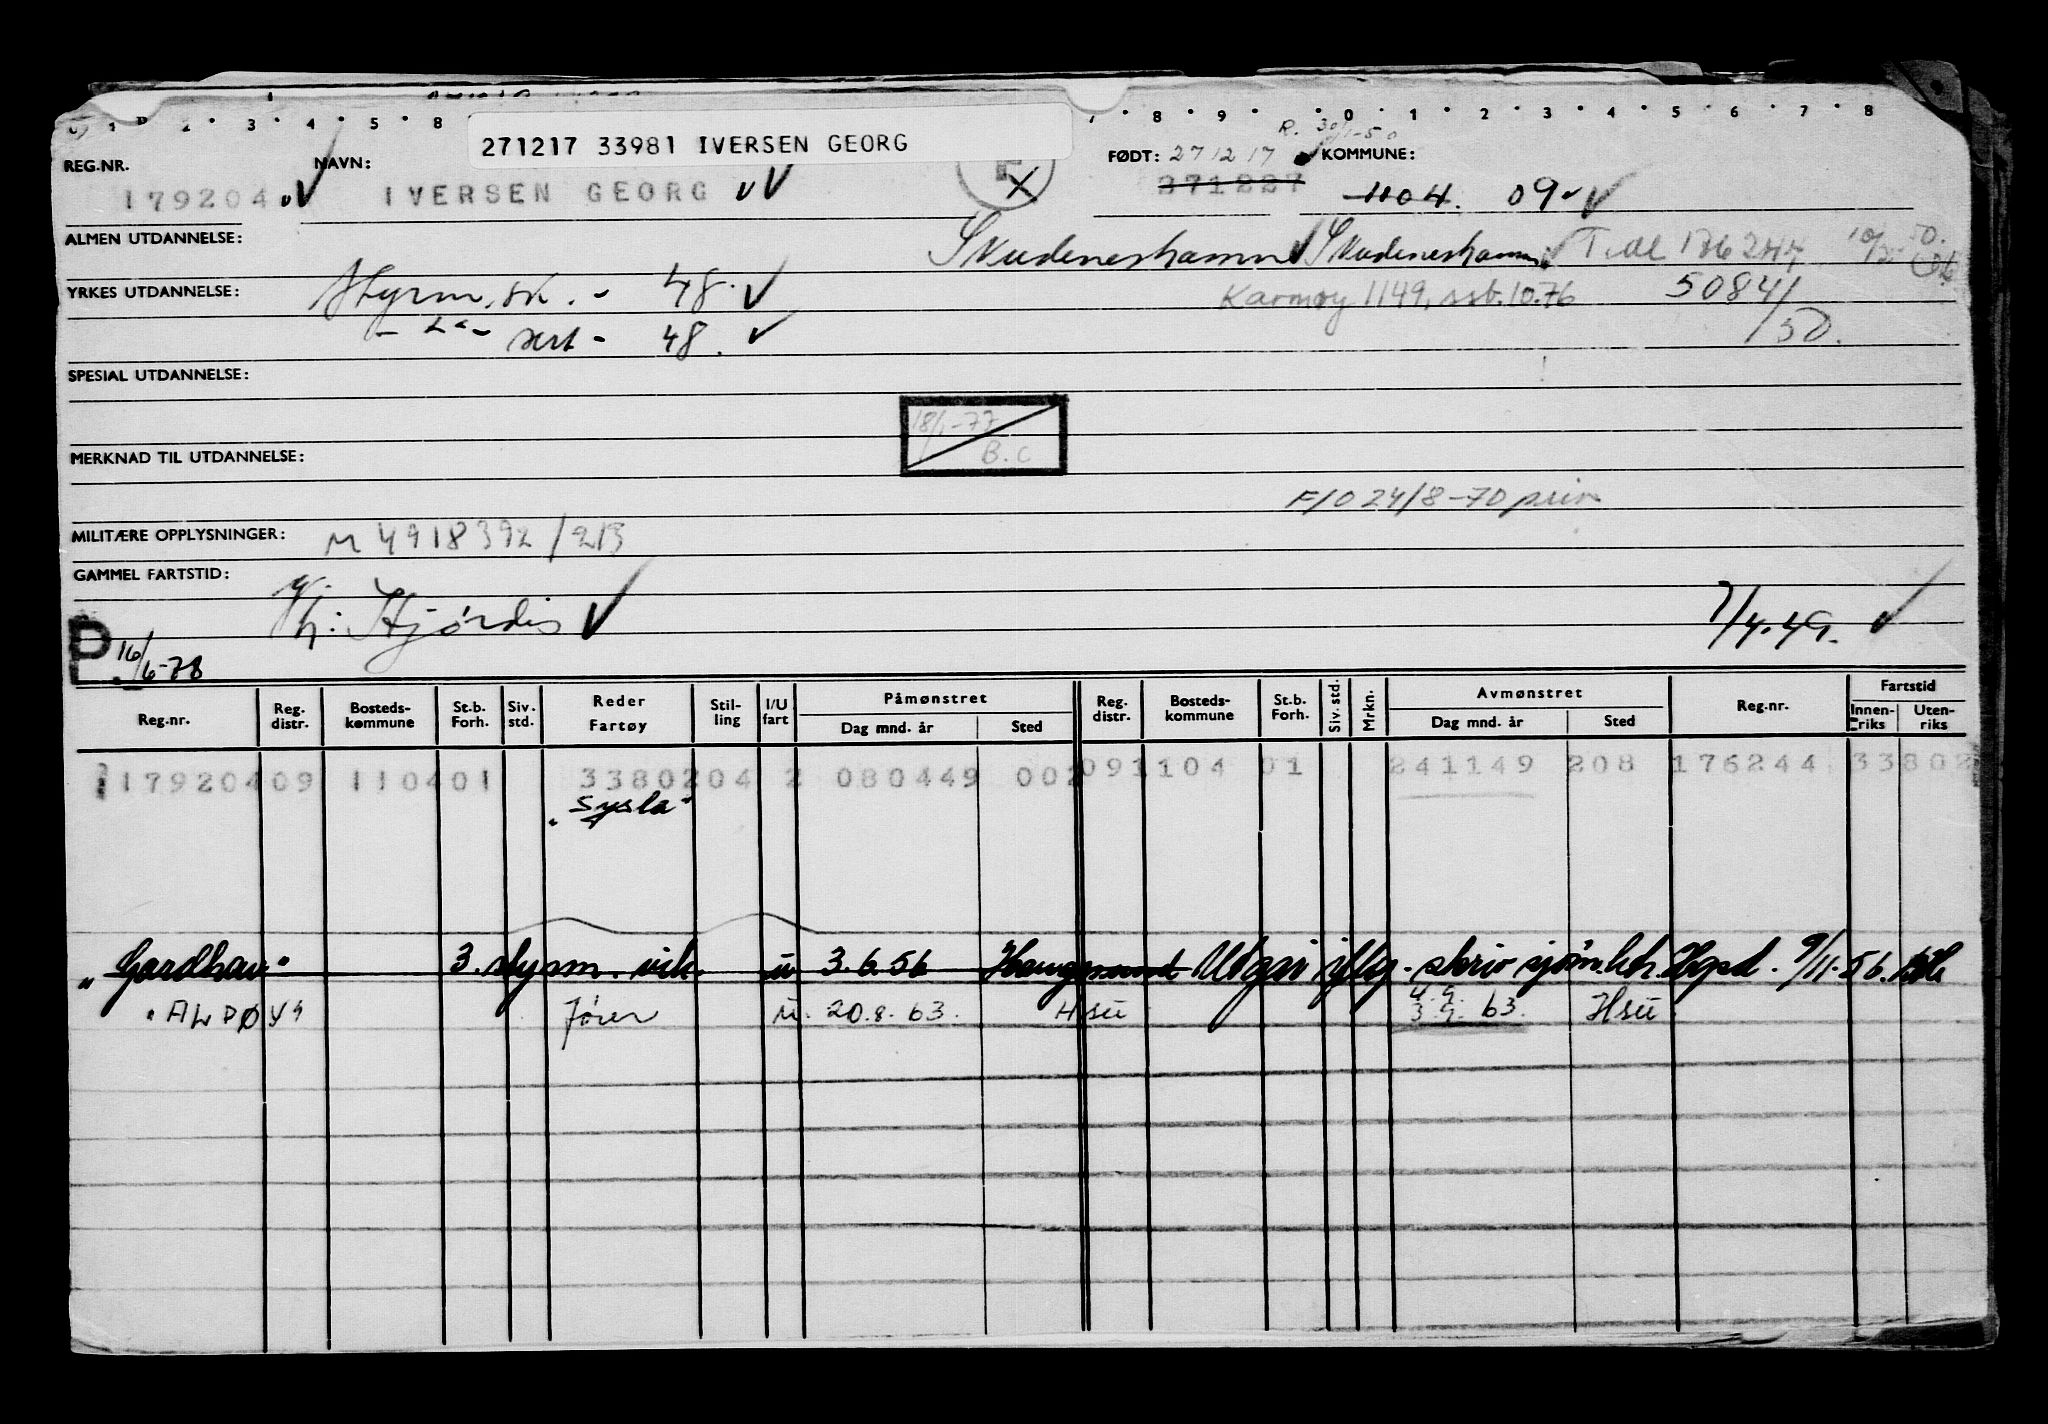 271217 33981 IVERSEN GEORG
R. 30/1-50
REG.NR. NAVN: FØDT: 271217 KOMMUNE:
179204 IVERSEN GEORG 271227 1104. 09
ALMEN UTDANNELSE: Skudeneshamn Skudeneshamn Tidl 176244 10/2 50.
YRKES UTDANNELSE: Styrm.sk. - 48. Karmøy 1149, ssb.10.76 5084/50.
- " - sert - 48.
SPESIAL UTDANNELSE:
18/1-77
B.C
MERKNAD TIL UTDANNELSE:
F/O 24/8-70 priv
MILITÆRE OPPLYSNINGER: M 4918392/213
GAMMEL FARTSTID:
Hjørdis 7/4.49.
P. 16/6-78
Reg.nr. Reg. distr. Bosteds-kommune St.b. Forh. Siv. std. Reder Fartøy Stil-ling I/U fart Påmønstret Dag mnd. år Sted Reg. distr. Bosteds-kommune St.b. Forh. Siv. std. Mrkn. Avmønstret Dag mnd. år Sted Reg.nr. Fartstid Innen-riks Uten-riks
179204 09 1104 01 33802 04 2 080449 002 09 1104 01 241149 208 176244 33802
"Sysla"
"Gardhav" 3. styrm. vik. u 3.6.56 Haugesund Utgår iflg. skriv sjøm.ktr. Hgsd. 9/11-56.
"ALDØY" Fører u. 20.8.63. Hsu 4.9. 3.9. 63. Hsu